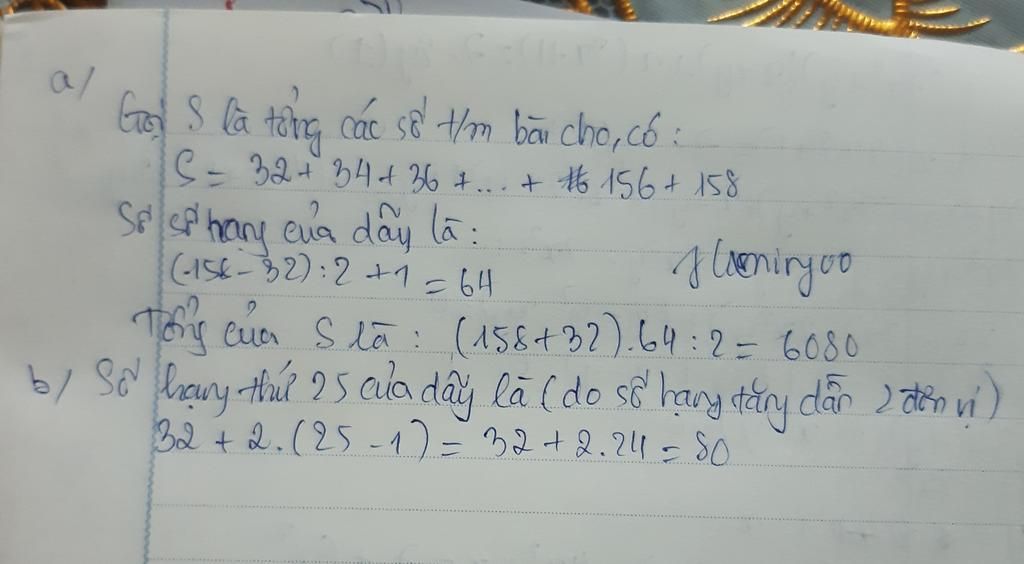 a/
Gọi S là tổng các số t/m bài cho, có:
S = 32 + 34 + 36 + ... + 156 + 158
Số số hạng của dãy là:
(158 - 32) : 2 + 1 = 64
flamingoo
Tổng của S là : (158 + 32) . 64 : 2 = 6080
b/ Số hạng thứ 25 của dãy là (do số hạng tăng dần 2 đơn vị)
32 + 2 . (25 - 1) = 32 + 2 . 24 = 80